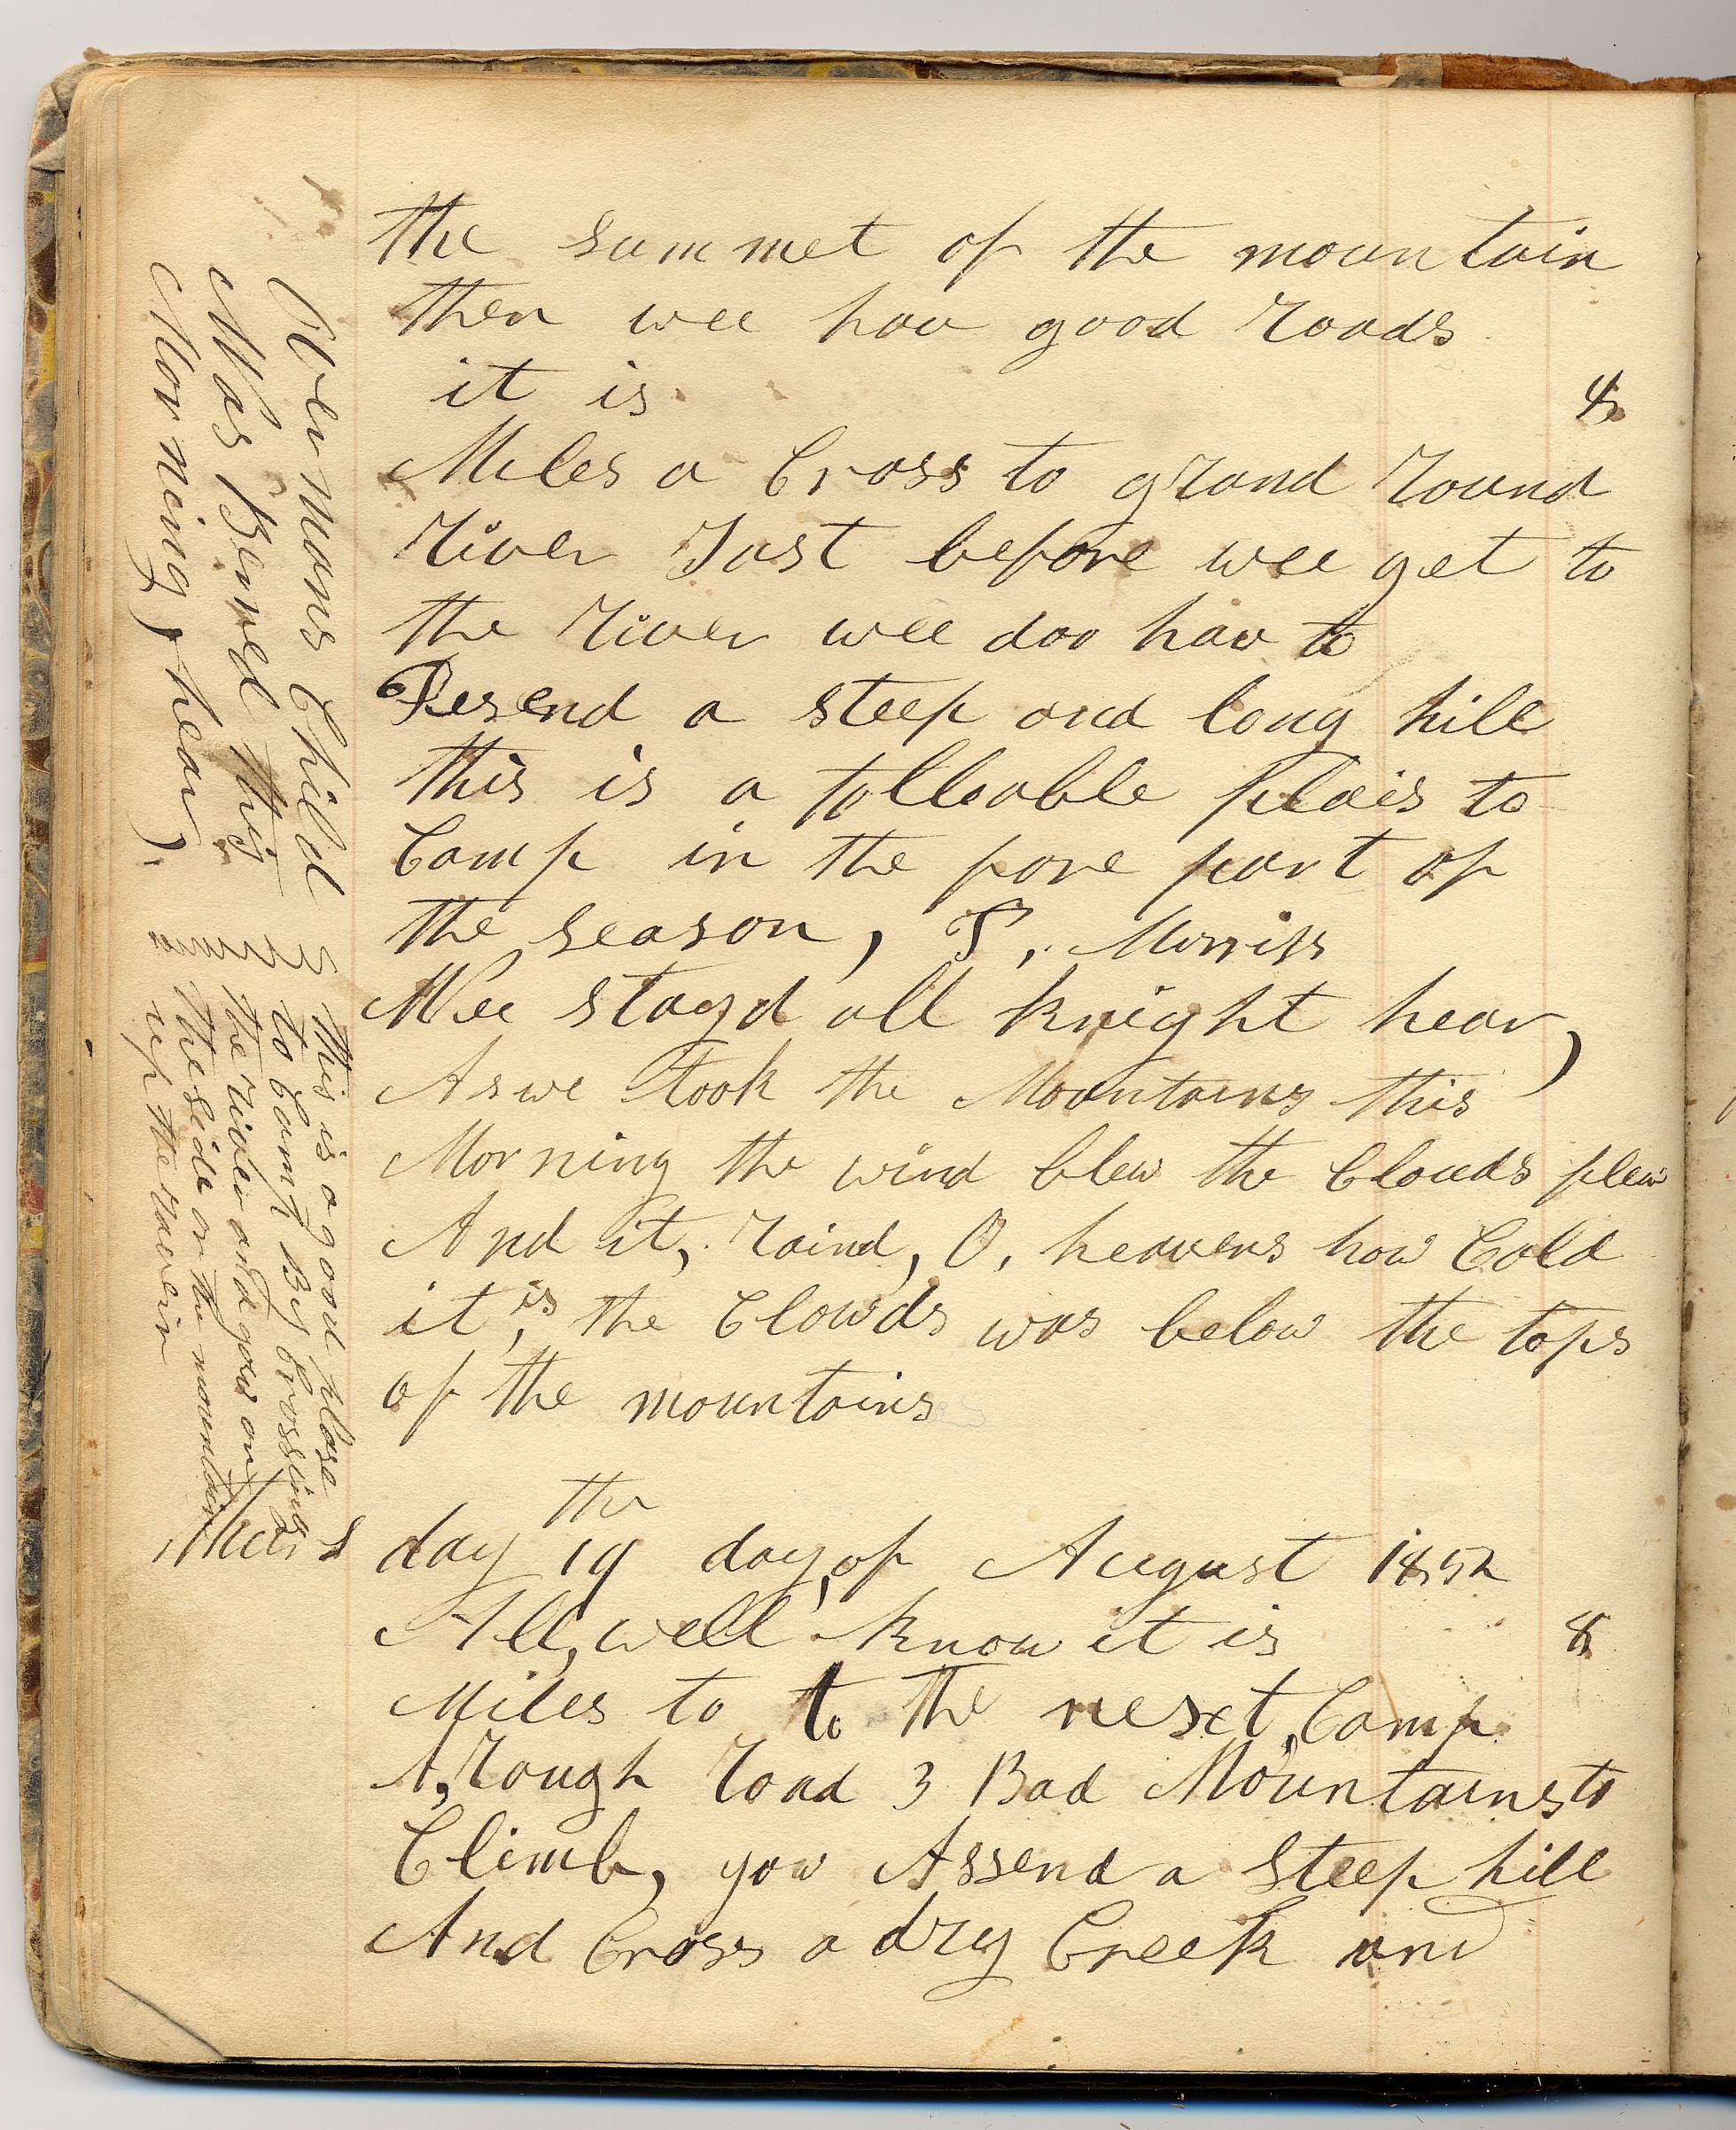 the summet of the mountain
then wee hav good roads
it is 8
Miles a Cross to grand round
river Just before wee get to
the river wee doo hav to
Desend a steep and long hill
this is a tolleable plais to
Camp in the fore part of
the season, S, Morriss
Wee stayd all knight hear,
As we took the Mountains this
Morning the wind blew the Clouds flew
And it, raind, O, heavens how Cold
it, is, the Clowds was below the tops
of the mountains
Thurs
day the 19 day, of August 1852
All, well know it is 8
Miles to to the nesxt, Camp
A, rough road 3 Bad Mountains to
Climb, you Assend a steep hill
And Cross a dry Creek and
mans Child
Was Burned this
Morning, hear,
this is a good plase
to Camp By Crossing
the river and gow on
the side or the mountain
up the ravein